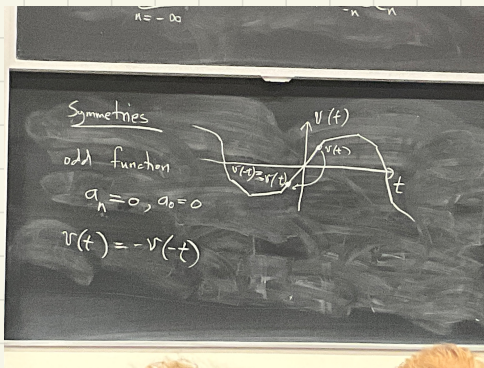 n = -∞
-n n
Symmetries
odd function
aₙ = 0, a₀ = 0
v(t) = -v(-t)
v(t)
v(t)
t